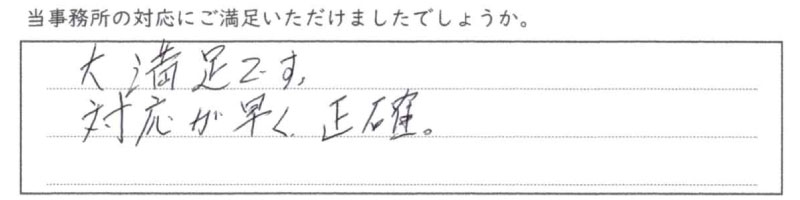 当事務所の対応にご満足いただけましたでしょうか。
大満足です、
対応が早く、正確。